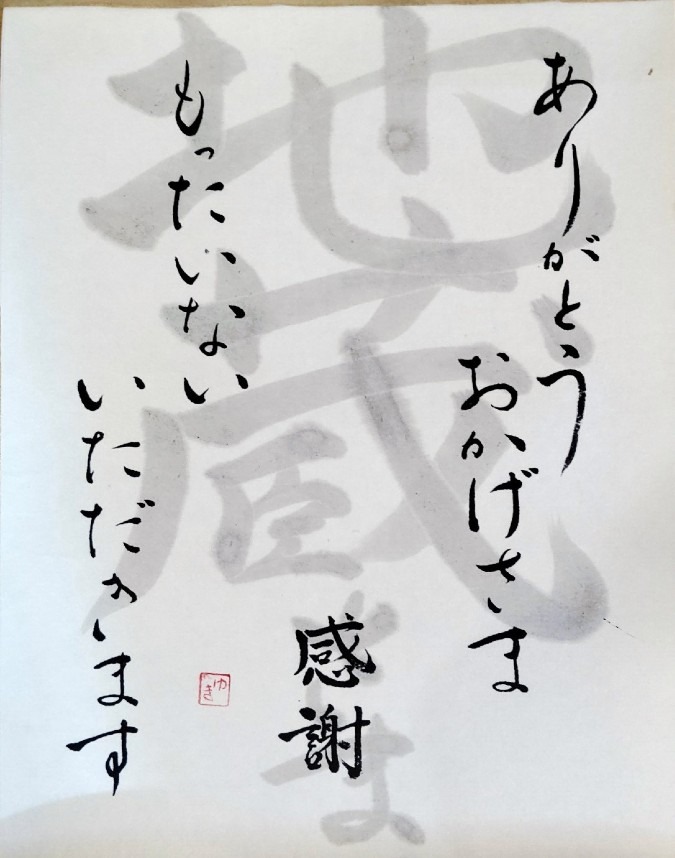 地蔵さま
ありがとう
おかげさま
感謝
もったいない
いただきます
ゆき